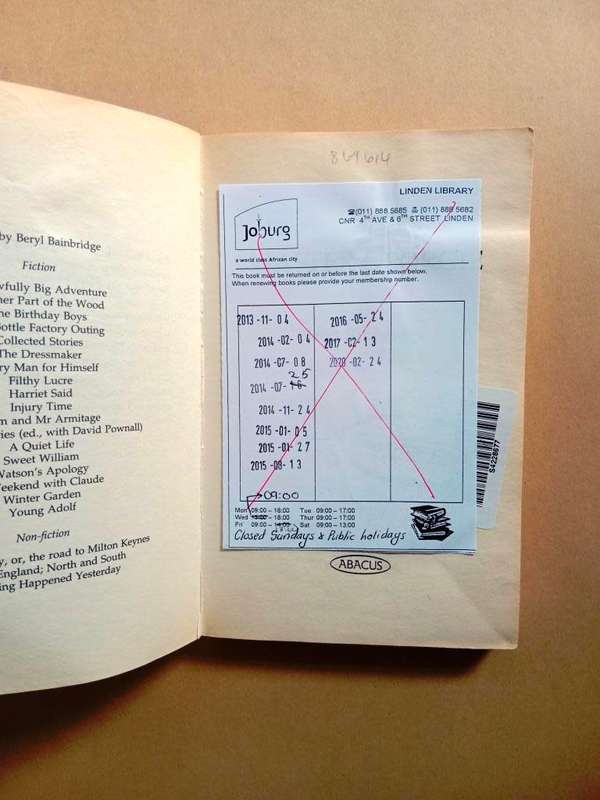 by Beryl Bainbridge
Fiction
wfully Big Adventure
her Part of the Wood
he Birthday Boys
Bottle Factory Outing
Collected Stories
The Dressmaker
ry Man for Himself
Filthy Lucre
Harriet Said
Injury Time
m and Mr Armitage
ies (ed., with David Pownall)
A Quiet Life
Sweet William
Watson's Apology
eekend with Claude
Winter Garden
Young Adolf
Non-fiction
y, or, the road to Milton Keynes
England; North and South
ing Happened Yesterday
LINDEN LIBRARY
(011) 888 5685 (011) 888 5682
CNR 4TH AVE & 6TH STREET LINDEN
Joburg
a world class African city
This book must be returned on or before the last date shown below.
When renewing books please provide your membership number.
2013-11-04
2014-02-04
2014-07-08
25
2014-07-
2014-11-24
2015-01-05
2015-01-27
2015-08-13
2016-05-24
2017-02-13
2020-02-24
09:00
Mon 09:00 – 18:00 Tue 09:00 – 17:00
Wed – 18:00 Thur 09:00 – 17:00
Fri 09:00 – Sat 09:00 – 13:00
Closed Sundays & Public holidays
S4228677
ABACUS